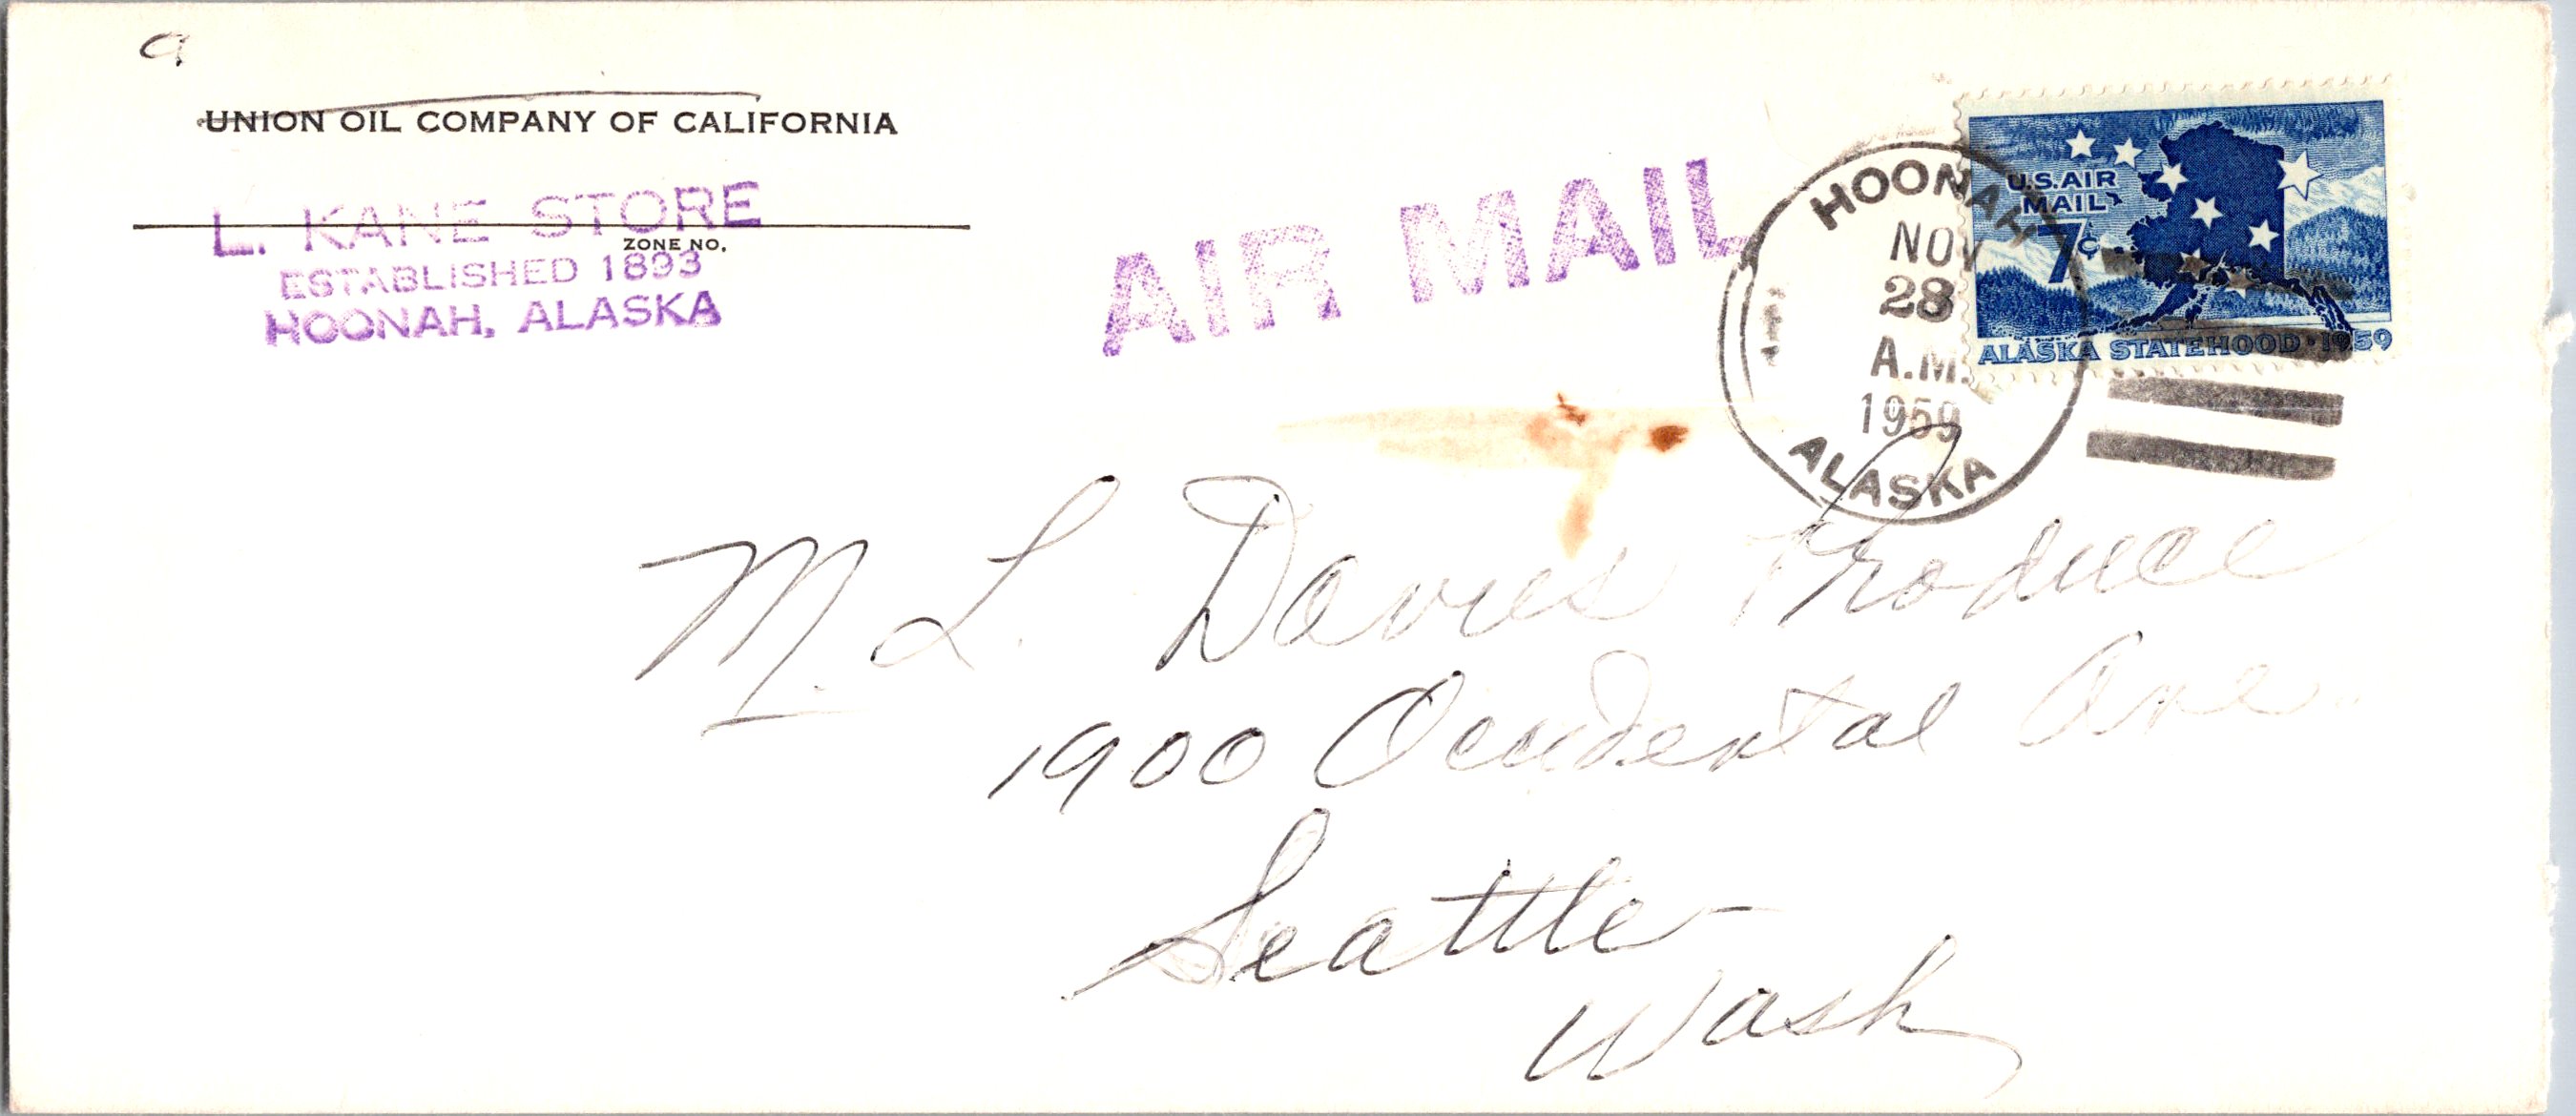 a
UNION OIL COMPANY OF CALIFORNIA
L. KANE STORE
ZONE NO.
ESTABLISHED 1893
HOONAH, ALASKA
AIR MAIL
HOONAH
NOV
28
A.M.
1959
ALASKA
U.S. AIR
MAIL
7¢
ALASKA STATEHOOD · 1959
M. L. Davies Produce
1900 Occidental Ave.
Seattle
Wash